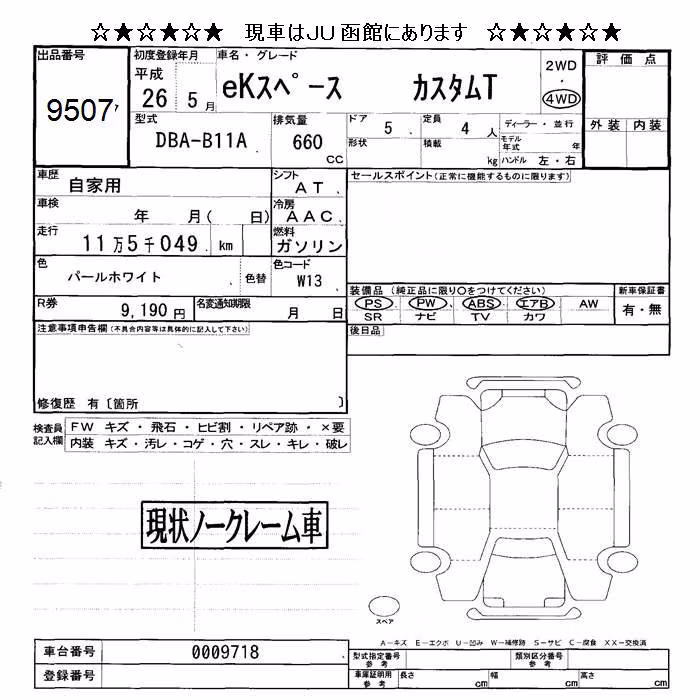 ☆★☆★☆★ 現車はJU函館にあります ☆★☆★☆★
出品番号
9507
初度登録年月
平成
26 5月
車名・グレード
eKスペース カスタムT
2WD
・
4WD
評価点
外装 内装
型式
DBA-B11A
排気量
660
CC
ドア
5
定員
4 人
ディーラー・並行
形状
積載
kg
モデル年式 年
ハンドル 左・右
車歴
自家用
シフト
AT
セールスポイント(正常に機能するものに限ります)
車検
年 月( 日)
冷房
AAC
走行
11万5千049 km
燃料
ガソリン
色
パールホワイト
色替
色コード
W13
装備品(純正品に限り○をつけてください)
新車保証書
PS PW ABS エアB AW
SR ナビ TV カワ
有・無
R券
9,190円
名変通知期限
月 日
後日品
注意事項申告欄(不具合内容等は具体的に記入して下さい)
修復歴 有〔箇所 〕
検査員記入欄
FW キズ・飛石・ヒビ割・リペア跡・×要
内装 キズ・汚レ・コゲ・穴・スレ・キレ・破レ
現状ノークレーム車
スペア
A-キズ E-エクボ U-凹み W-補修跡 S-サビ C-腐食 XX-交換済
車台番号
0009718
登録番号
型式指定番号
参考
類別区分番号
参考
車庫証明用
参考
長さ cm
幅 cm
高さ cm